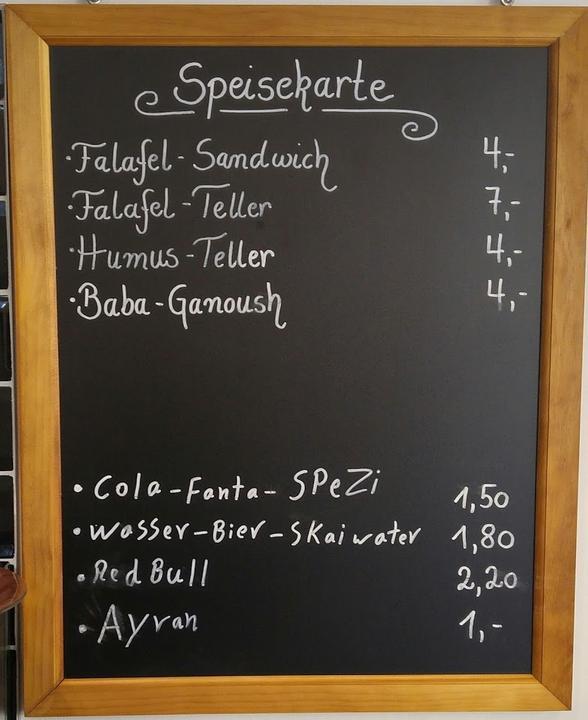 Speisekarte
·Falafel-Sandwich 4,-
·Falafel-Teller 7,-
·Humus-Teller 4,-
·Baba-Ganoush 4,-
·Cola-Fanta-SPeZi 1,50
·Wasser-Bier-Skaiwater 1,80
·Red Bull 2,20
·Ayran 1,-